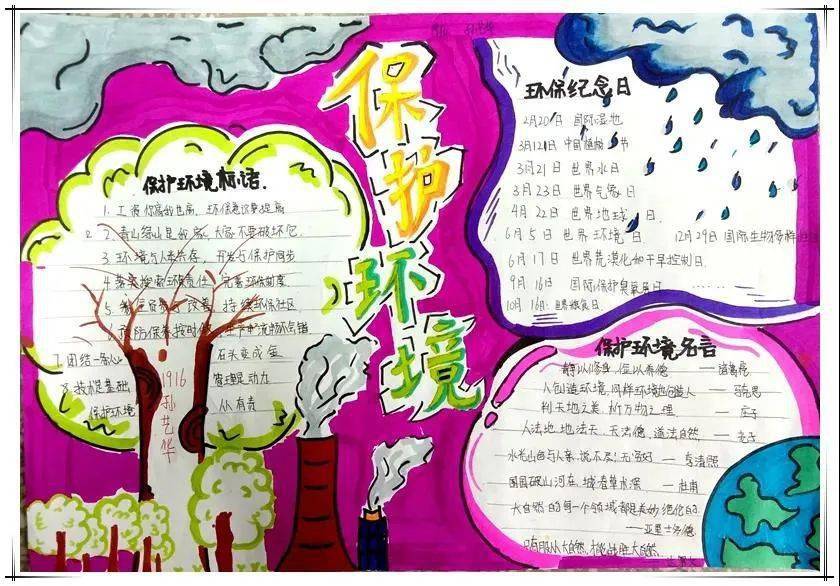 1916 孙艺华
保护环境
保护环境标语.
1. 工资你高我也高, 环保意识要提高
2. 青山绿山是我家, 大家不要破坏它
3. 环境与人类共存, 开发与保护同步
4. 落实 环保责任 完善环保制度
5. 改善 持续环保社区
6. 预防保养按时做, 生产 不会错
7. 团结一条心 石头变成金
8. 技术是基础 管理是动力
保护环境 人有责
1916
孙艺华
环保纪念日
2月20日 国际湿地
3月12日 中国植树节
3月21日 世界水日
3月23日 世界气象日
4月22日 世界地球日.
6月5日 世界环境日 12月29日 国际生物多样性日
6月17日 世界荒漠化和干旱控制日.
9月16日 国际保护臭氧层日
10月16日 世界粮食日
保护环境名言
静以修身, 俭以养德 ——诸葛亮
人创造环境, 同样环境也创造人 ——马克思
判天地之美, 析万物之理 ——庄子
人法地, 地法天, 天法道, 道法自然, ——老子
水光山色与人亲, 说不尽! 无穷好 —李清照
国破山河在, 城春草木深 —杜甫
大自然的每一个领域都是美妙绝伦的.
——亚里士多德
只有服从大自然, 才能战胜大自然
——达尔文